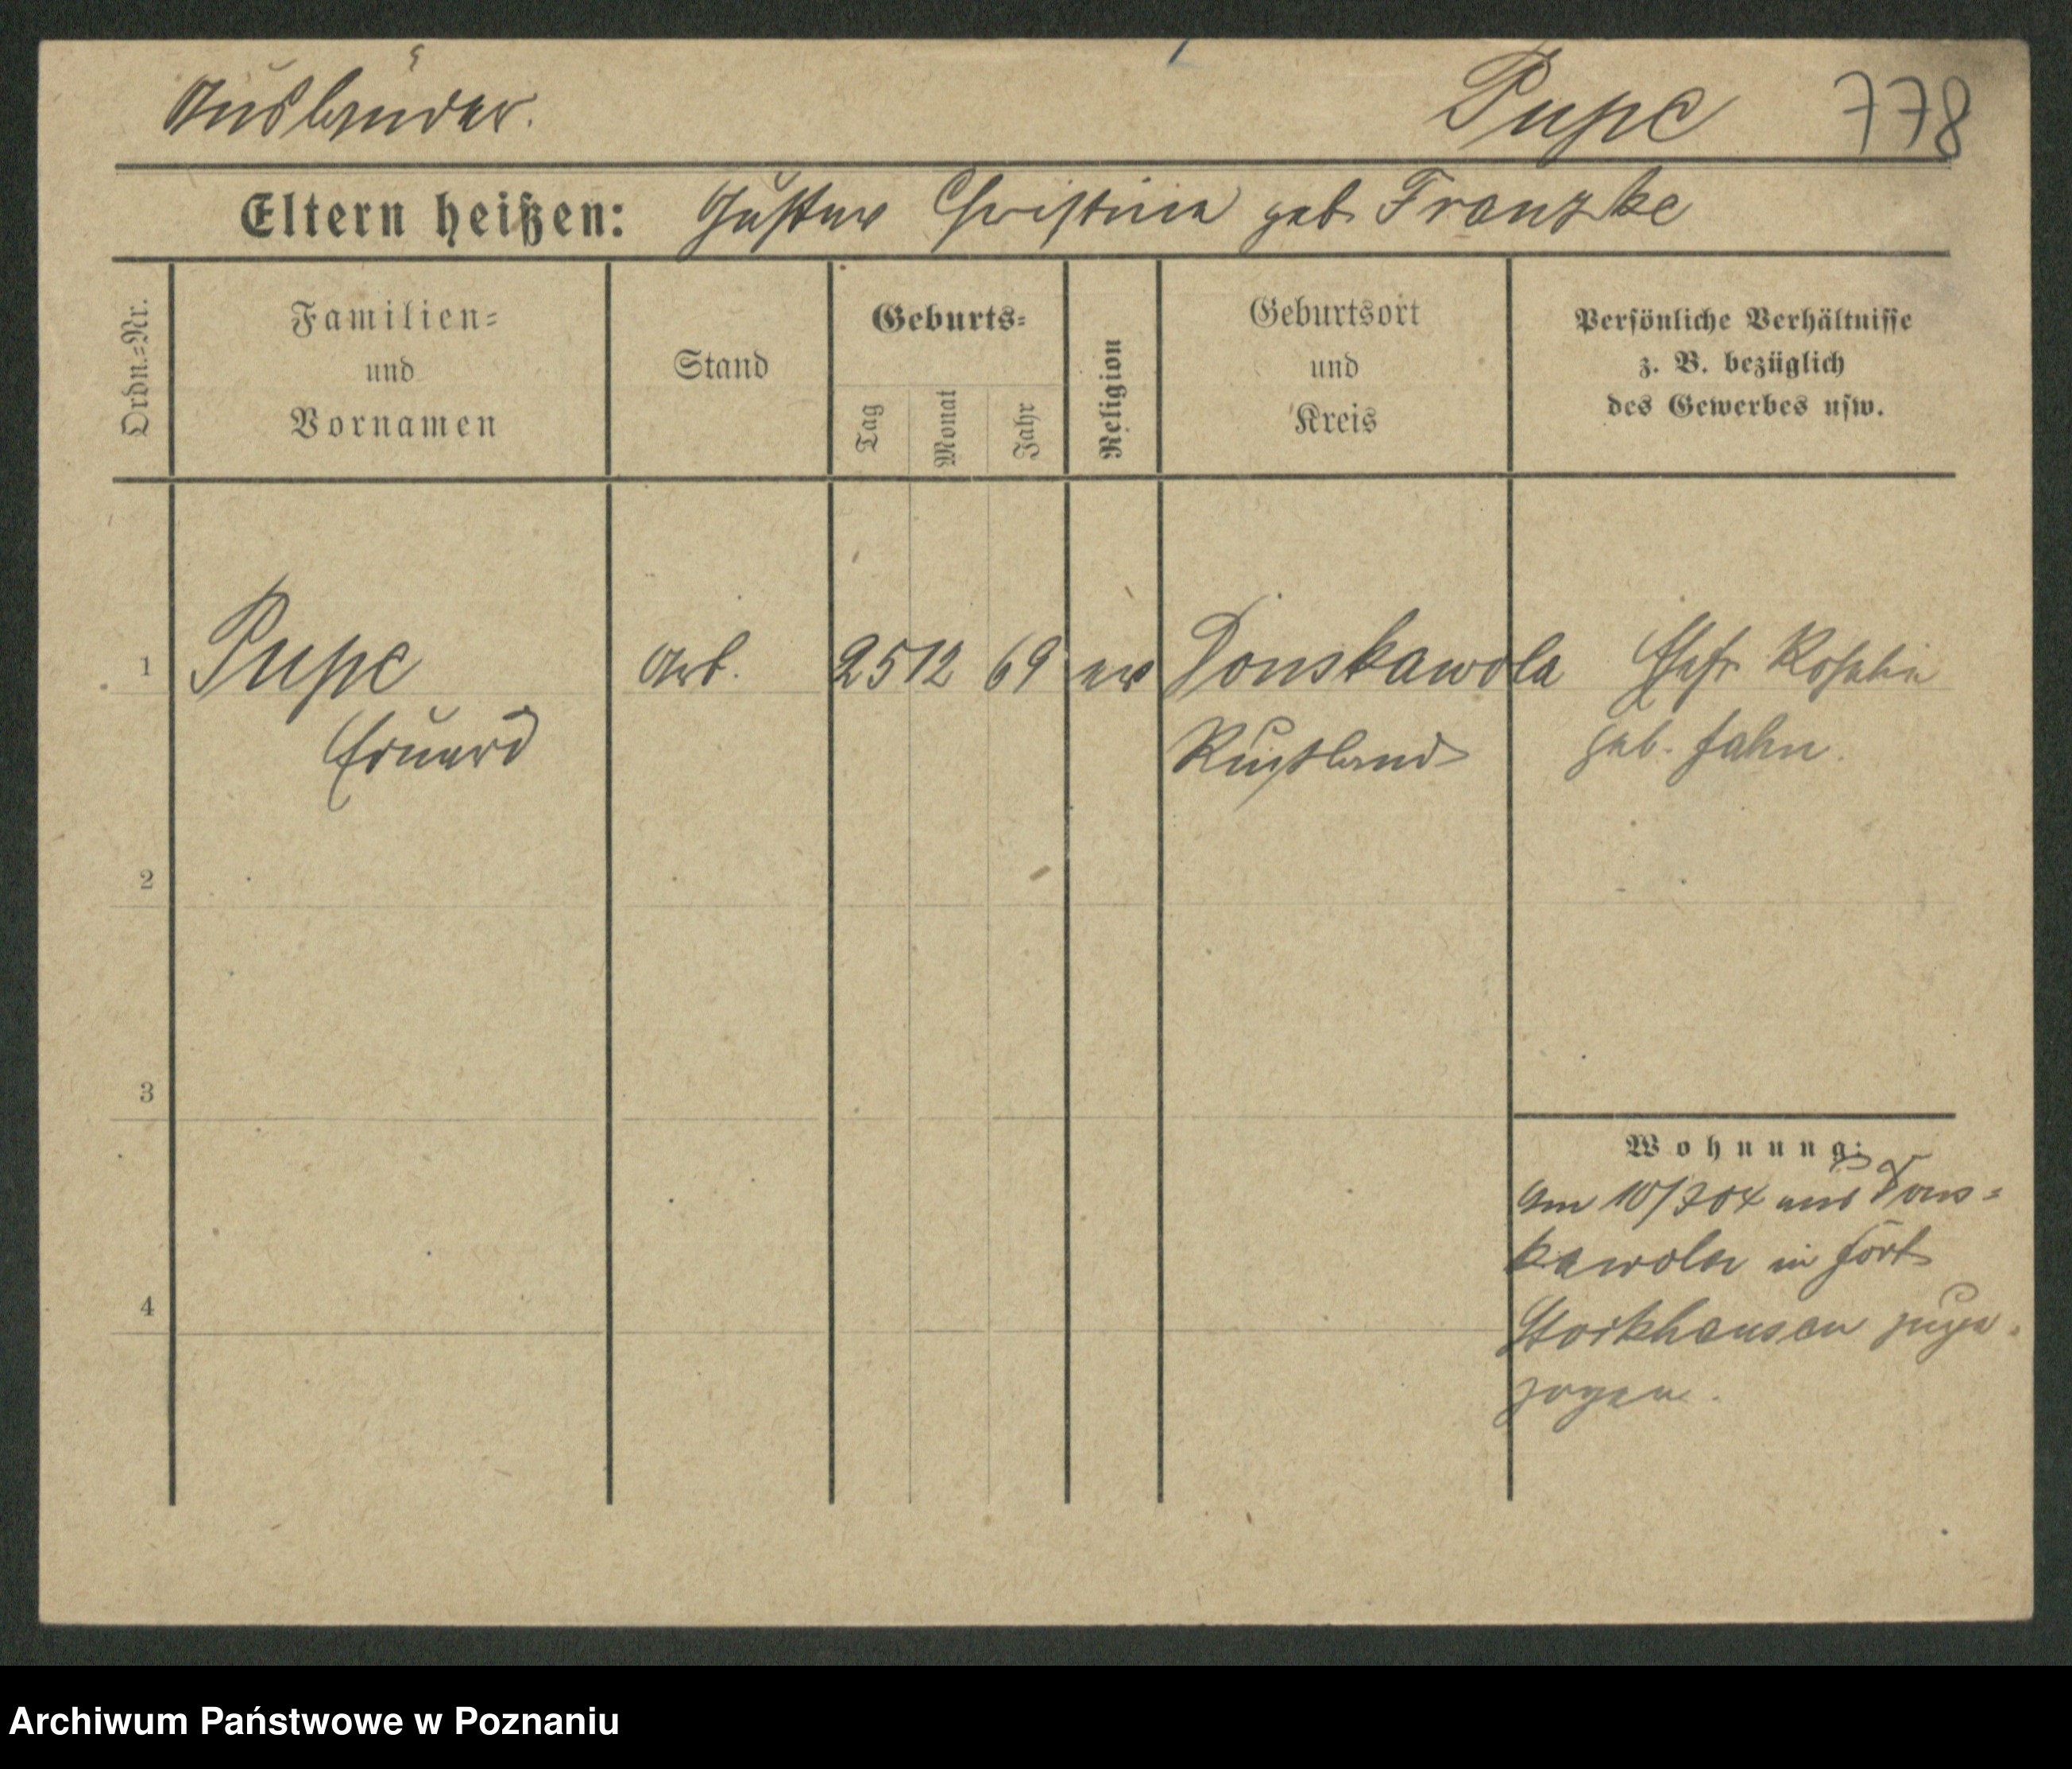 Ausländer. Pupe 778
Eltern heißen: Gustav Christina geb. Franzke
Ordn.=Nr.
Familien=
und
Vornamen
Stand
Geburts=
Tag
Monat
Jahr
Religion
Geburtsort
und
Kreis
Persönliche Verhältnisse
z. B. bezüglich
des Gewerbes usw.
1 Pupe Arb. 25 12 69 ev Donskawola Ehefr Rosalie
Eduard Rußland geb. Jahn.
2
3
4
Wohnung:
Am 10/7 04 aus Dons=
kawola in Fort
Stockhausen zuge.
zogen.
Archiwum Państwowe w Poznaniu